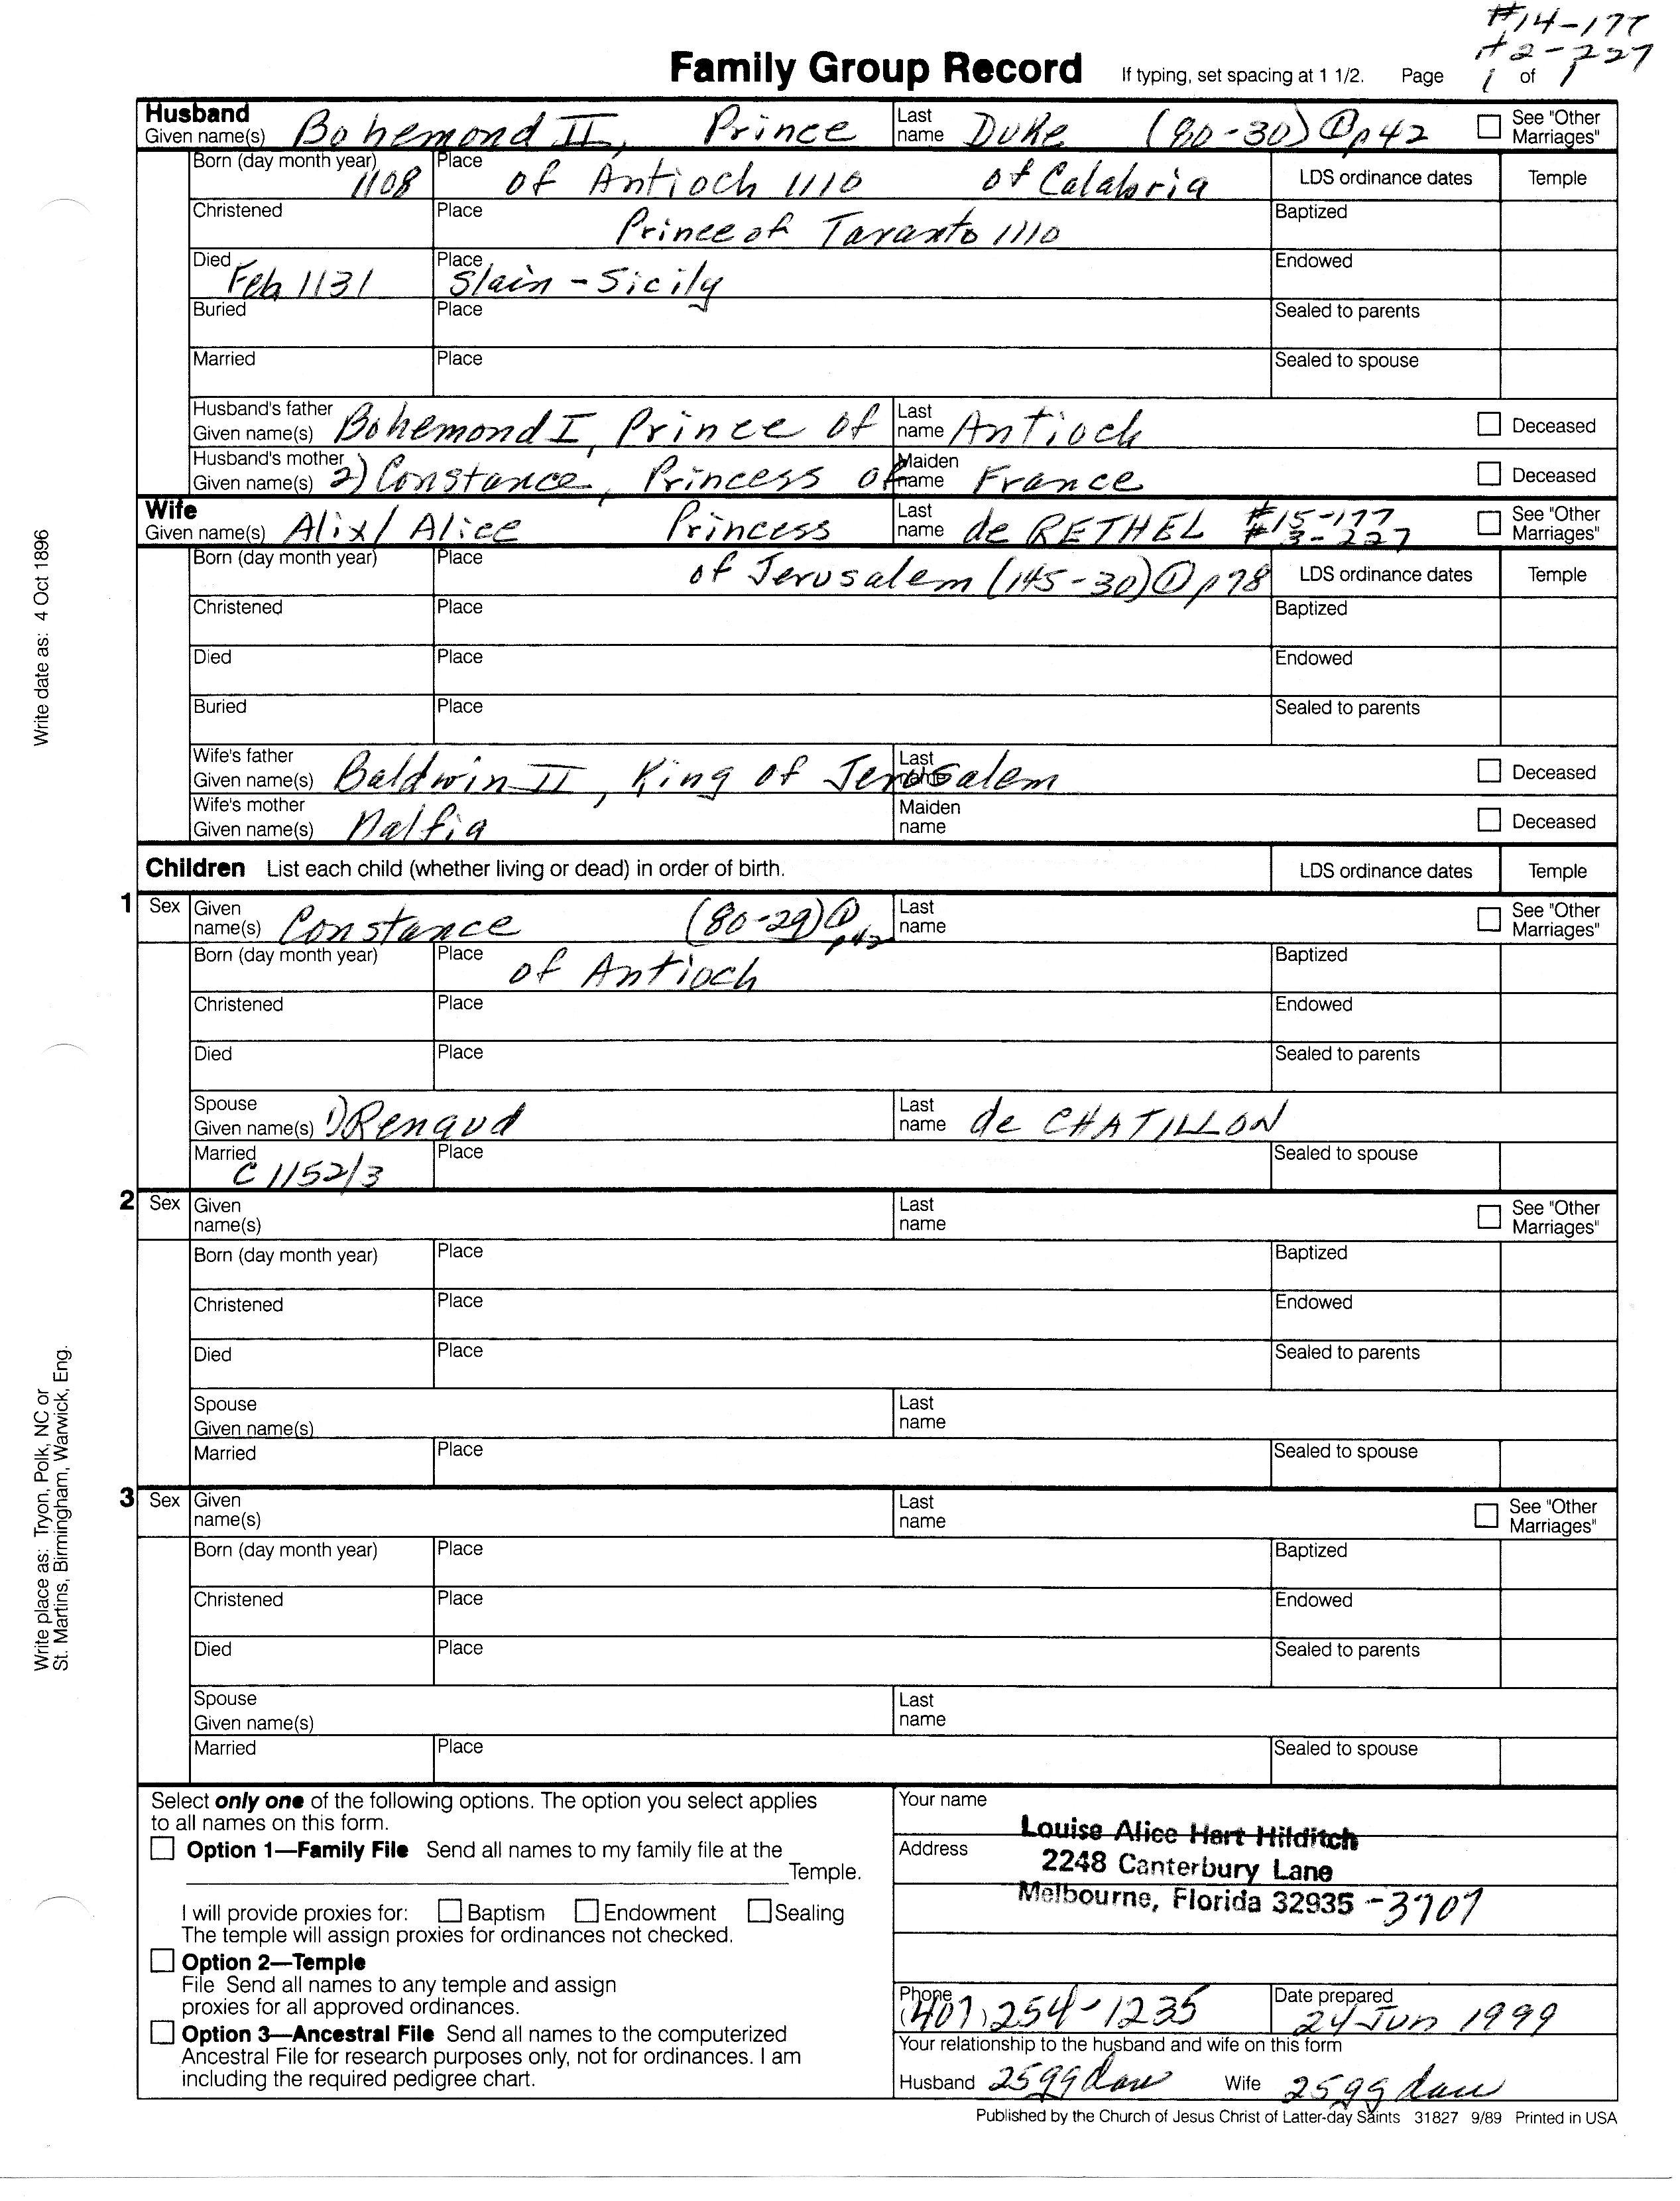 #14-177
#2-227
Family Group Record If typing, set spacing at 1 1/2. Page 1 of 1
Husband
Given name(s) Bohemond II, Prince Last name Duke (80-30) ① p42 See "Other Marriages"
Born (day month year) 1108 Place of Antioch 1110 of Calabria LDS ordinance dates Temple
Christened Place Prince of Taranto 1110 Baptized
Died Feb 1131 Place Slain - Sicily Endowed
Buried Place Sealed to parents
Married Place Sealed to spouse
Husband's father Given name(s) Bohemond I, Prince of Last name Antioch Deceased
Husband's mother Given name(s) 2) Constance, Princess of Maiden name France Deceased
Wife
Given name(s) Alix/Alice Princess Last name de RETHEL #15-177 #3-227 See "Other Marriages"
Born (day month year) Place of Jerusalem (145-30) ① p98 LDS ordinance dates Temple
Christened Place Baptized
Died Place Endowed
Buried Place Sealed to parents
Wife's father Given name(s) Baldwin II, King of Jerusalem Last name Deceased
Wife's mother Given name(s) Malfia Maiden name Deceased
Children List each child (whether living or dead) in order of birth. LDS ordinance dates Temple
1 Sex Given name(s) Constance (80-29) ① p42 Last name See "Other Marriages"
Born (day month year) Place of Antioch Baptized
Christened Place Endowed
Died Place Sealed to parents
Spouse Given name(s) 1) Renaud Last name de CHATILLON
Married C 1152/3 Place Sealed to spouse
2 Sex Given name(s) Last name See "Other Marriages"
Born (day month year) Place Baptized
Christened Place Endowed
Died Place Sealed to parents
Spouse Given name(s) Last name
Married Place Sealed to spouse
3 Sex Given name(s) Last name See "Other Marriages"
Born (day month year) Place Baptized
Christened Place Endowed
Died Place Sealed to parents
Spouse Given name(s) Last name
Married Place Sealed to spouse
Select only one of the following options. The option you select applies
to all names on this form.
Option 1—Family File Send all names to my family file at the
Temple.
I will provide proxies for: Baptism Endowment Sealing
The temple will assign proxies for ordinances not checked.
Option 2—Temple
File Send all names to any temple and assign
proxies for all approved ordinances.
Option 3—Ancestral File Send all names to the computerized
Ancestral File for research purposes only, not for ordinances. I am
including the required pedigree chart.
Your name Louise Alice Hart Hilditch
Address 2248 Canterbury Lane
Melbourne, Florida 32935 -3707
Phone (407) 254-1235 Date prepared 24 Jun 1999
Your relationship to the husband and wife on this form
Husband 25 gg dau Wife 25 gg dau
Published by the Church of Jesus Christ of Latter-day Saints 31827 9/89 Printed in USA
Write date as: 4 Oct 1896
Write place as: Tryon, Polk, NC or
St. Martins, Birmingham, Warwick, Eng.